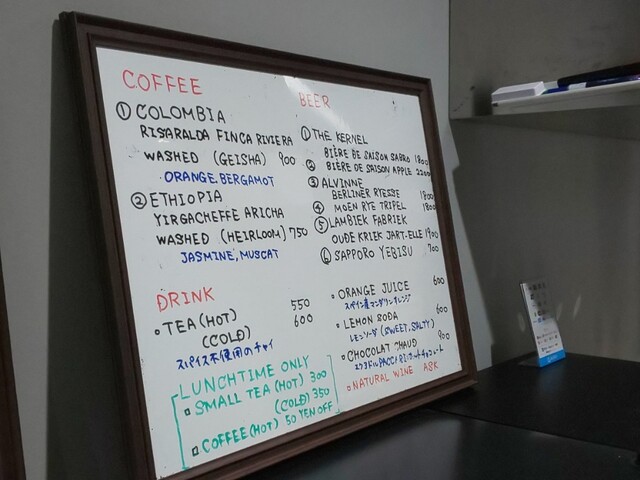 COFFEE
① COLOMBIA
RISARALDA FINCA RIVIERA
WASHED (GEISHA) 900
ORANGE. BERGAMOT
② ETHIOPIA
YIRGACHEFFE ARICHA
WASHED (HEIRLOOM) 750
JASMINE, MUSCAT
BEER
① THE KERNEL
BIÈRE DE SAISON SABRO 1800
② BIÈRE DE SAISON APPLE 2200
③ ALVINNE
BERLINER RYESSE 1800
④ MOEN RYE TRIPEL 1800
⑤ LAMBIEK FABRIEK
OUDE KRIEK JART-ELLE 1900
⑥ SAPPORO YEBISU 700
DRINK
TEA (HOT) 550
(COLD) 600
スパイス不使用のチャイ
LUNCHTIME ONLY
SMALL TEA (HOT) 300
(COLD) 350
COFFEE (HOT) 50 YEN OFF
ORANGE JUICE 600
スペイン産マンダリンオレンジ
LEMON SODA 600
レモンソーダ (SWEET, SALTY)
CHOCOLAT CHAUD 900
NATURAL WINE ASK